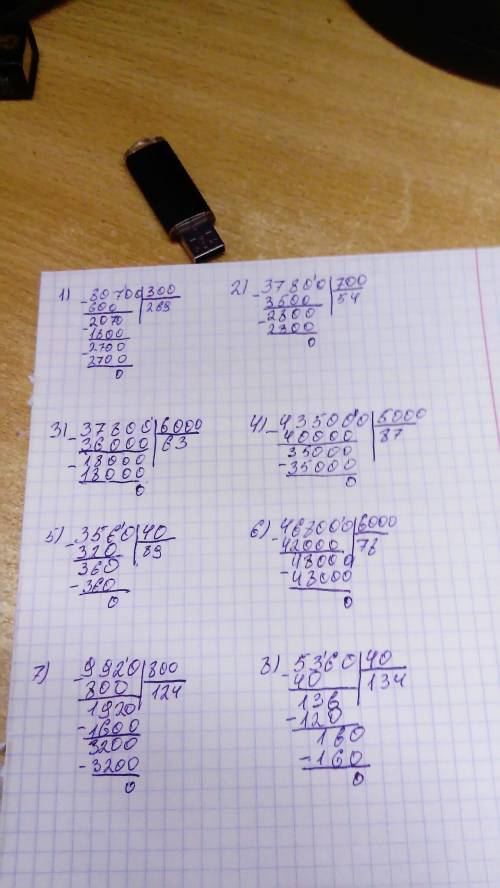 1) - 80700 300
600 269
- 2070
1800
- 2700
2700
0
2) - 37800 700
3500 54
- 2800
2800
0
3) - 378000 6000
36000 63
- 18000
18000
0
4) - 435000 5000
40000 87
35000
- 35000
0
5) - 3560 40
320 89
360
- 360
0
6) - 468000 6000
42000 78
48000
- 48000
0
7) - 9920 800
800 124
1920
- 1600
3200
- 3200
0
8) - 5360 40
40 134
136
- 120
160
- 160
0